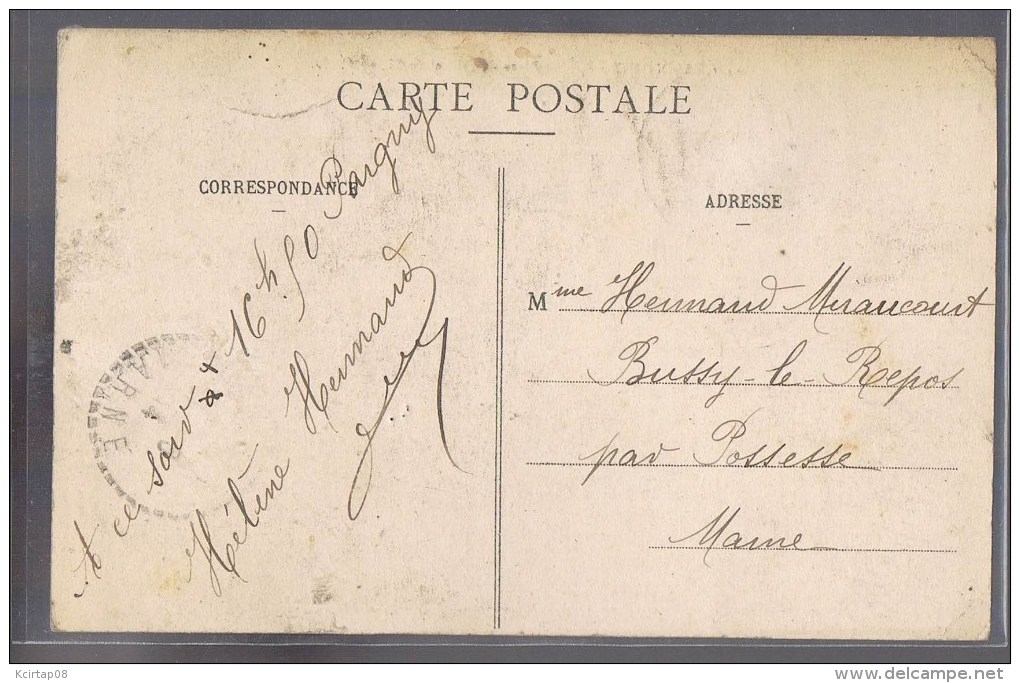 CARTE POSTALE
CORRESPONDANCE
A ce soir 16h50 Pargny
Hélène Hennand
MARNE
ADRESSE
Mme Hennand Miraucourt
Bussy-le-Repos
par Possesse
Marne
Kcirtap08
www.delcampe.net